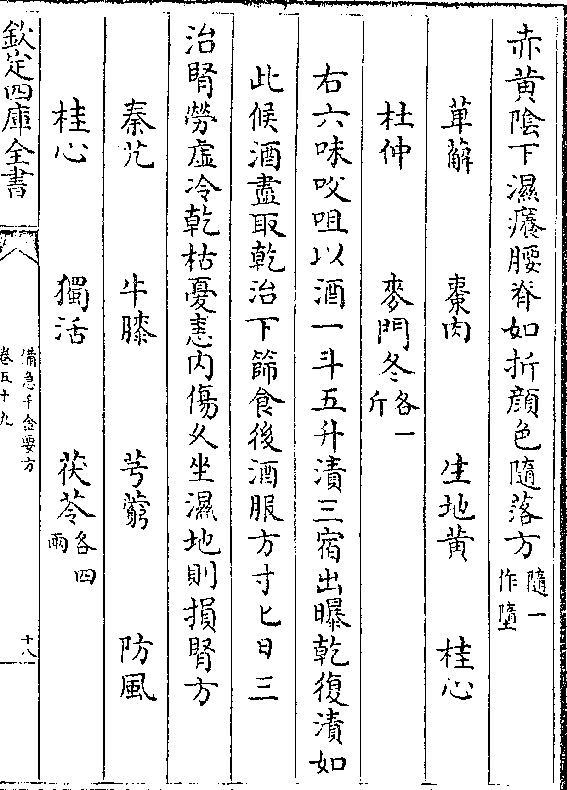 赤黄陰下濕癢腰脊如折顔色隨落方隨一作墮
萆薢　棗肉　生地黄　桂心
杜仲　麥門冬各一斤
右六味㕮咀以酒一斗五升漬三宿出曝乾復漬如
此候酒盡取乾治下篩食後酒服方寸匕日三
治腎勞虚冷乾枯憂恚内傷久坐濕地則損腎方
秦艽　牛膝　芎藭　防風
桂心　獨活　茯苓各四兩
欽定四庫全書
備急千金要方
卷五十九
十八